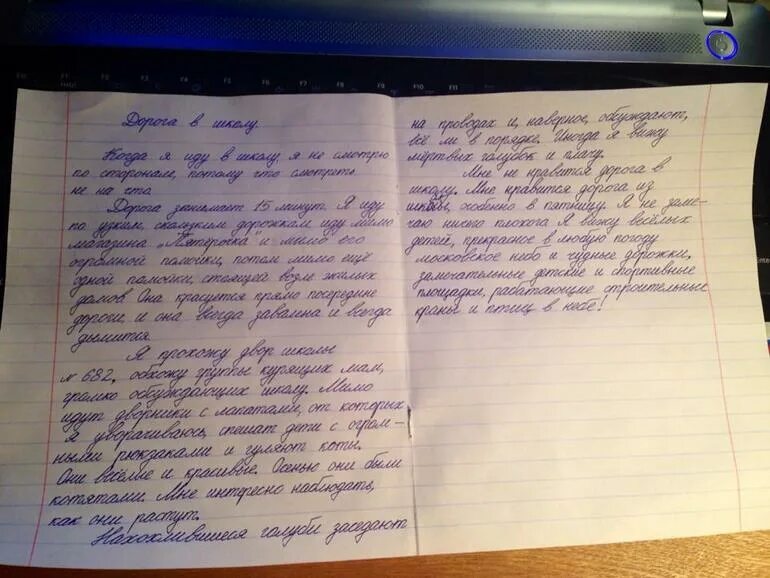 Дорога в школу.
Когда я иду в школу, я не смотрю
по сторонам, потому что смотреть
не на что.
Дорога занимает 15 минут. Я иду
по узким, скользким дорожкам, иду мимо
магазина "Пятёрочка" и мимо его
огромной помойки, потом мимо ещё
одной помойки, стоящей возле жилых
домов. Она красуется прямо посередине
дороги, и она всегда завалена и всегда
дымится.
Я прохожу двор школы
№ 682, обхожу группы курящих мам,
громко обсуждающих школу. Мимо
идут дворники с лопатами, от которых
я уворачиваюсь, спешат дети с огром-
ными рюкзаками и гуляют коты.
Они весёлые и красивые. Осенью они были
котятами. Мне интересно наблюдать,
как они растут.
Нахохлившиеся голуби заседают
на проводах и, наверное, обсуждают,
всё ли в порядке. Иногда я вижу
мёртвых голубок и плачу.
Мне не нравится дорога в
школу. Мне нравится дорога из
школы, особенно в пятницу. Я не заме-
чаю ничего плохого. Я вижу весёлых
детей, прекрасное в любую погоду
московское небо и чудные дорожки,
замечательные детские и спортивные
площадки, работающие строительные
краны и птиц в небе!
F10
F11
Enter